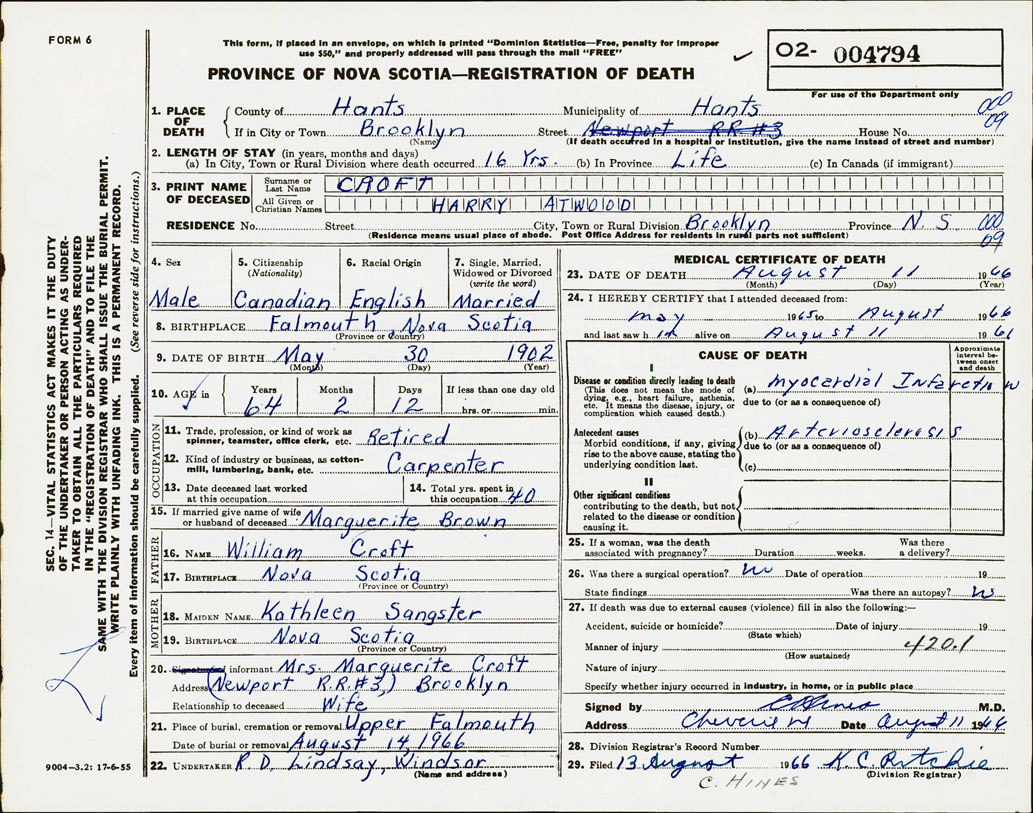 FORM 6
This form, if placed in an envelope, on which is printed "Dominion Statistics—Free, penalty for improper
use $50," and properly addressed will pass through the mail "FREE"
O2- 004794
PROVINCE OF NOVA SCOTIA—REGISTRATION OF DEATH
For use of the Department only
1. PLACE OF DEATH County of Hants Municipality of Hants
If in City or Town Brooklyn Street Newport RR #3 House No.
(Name) (If death occurred in a hospital or institution, give the name instead of street and number)
000
09
2. LENGTH OF STAY (in years, months and days)
(a) In City, Town or Rural Division where death occurred 16 Yrs. (b) In Province Life (c) In Canada (if immigrant)
3. PRINT NAME OF DECEASED
Surname or Last Name CROFT
All Given or Christian Names HARRY ATWOOD
RESIDENCE No. Street City, Town or Rural Division Brooklyn Province N S
(Residence means usual place of abode. Post Office Address for residents in rural parts not sufficient)
000
09
4. Sex
Male
5. Citizenship
(Nationality)
Canadian
6. Racial Origin
English
7. Single, Married,
Widowed or Divorced
(write the word)
Married
8. BIRTHPLACE Falmouth, Nova Scotia
(Province or Country)
9. DATE OF BIRTH May 30 1902
(Month) (Day) (Year)
10. AGE in
Years Months Days If less than one day old
64 2 12 hrs. or min.
OCCUPATION
11. Trade, profession, or kind of work as
spinner, teamster, office clerk, etc. Retired
12. Kind of industry or business, as cotton-
mill, lumbering, bank, etc. Carpenter
13. Date deceased last worked
at this occupation
14. Total yrs. spent in
this occupation 40
15. If married give name of wife
or husband of deceased Marguerite Brown
FATHER
16. NAME William Croft
17. BIRTHPLACE Nova Scotia
(Province or Country)
MOTHER
18. MAIDEN NAME Kathleen Sangster
19. BIRTHPLACE Nova Scotia
(Province or Country)
20. Signature of informant Mrs. Marguerite Croft
Address (Newport R.R.#3,) Brooklyn
Relationship to deceased Wife
21. Place of burial, cremation or removal Upper Falmouth
Date of burial or removal August 14, 1966
22. UNDERTAKER R. D. Lindsay, Windsor
(Name and address)
MEDICAL CERTIFICATE OF DEATH
23. DATE OF DEATH August 11 1966
(Month) (Day) (Year)
24. I HEREBY CERTIFY that I attended deceased from:
May 1965 to August 1966
and last saw him alive on August 11 1966
CAUSE OF DEATH
Approximate
interval be-
tween onset
and death
I
Disease or condition directly leading to death
(This does not mean the mode of
dying, e.g., heart failure, asthenia,
etc. It means the disease, injury, or
complication which caused death.)
(a) Myocardial Infarction
due to (or as a consequence of)
Antecedent causes
Morbid conditions, if any, giving
rise to the above cause, stating the
underlying condition last.
(b) Arteriosclerosis
due to (or as consequence of)
(c)
II
Other significant conditions
contributing to the death, but not
related to the disease or condition
causing it.
25. If a woman, was the death
associated with pregnancy? Duration weeks. Was there
a delivery?
26. Was there a surgical operation? no Date of operation 19
State findings Was there an autopsy? no
27. If death was due to external causes (violence) fill in also the following:—
Accident, suicide or homicide? Date of injury 19
(State which)
Manner of injury 420.1
(How sustained)
Nature of injury
Specify whether injury occurred in industry, in home, or in public place
Signed by C Hines M.D.
Address Cheverie NS Date August 11 1966
28. Division Registrar's Record Number
29. Filed 13 August 1966 K. C. Ritchie
(Division Registrar)
C. HINES
SEC. 14—VITAL STATISTICS ACT MAKES IT THE DUTY
OF THE UNDERTAKER OR PERSON ACTING AS UNDER-
TAKER TO OBTAIN ALL THE PARTICULARS REQUIRED
IN THE "REGISTRATION OF DEATH" AND TO FILE THE
SAME WITH THE DIVISION REGISTRAR WHO SHALL ISSUE THE BURIAL PERMIT.
WRITE PLAINLY WITH UNFADING INK. THIS IS A PERMANENT RECORD.
Every item of information should be carefully supplied. (See reverse side for instructions.)
9004—3.2: 17-6-55